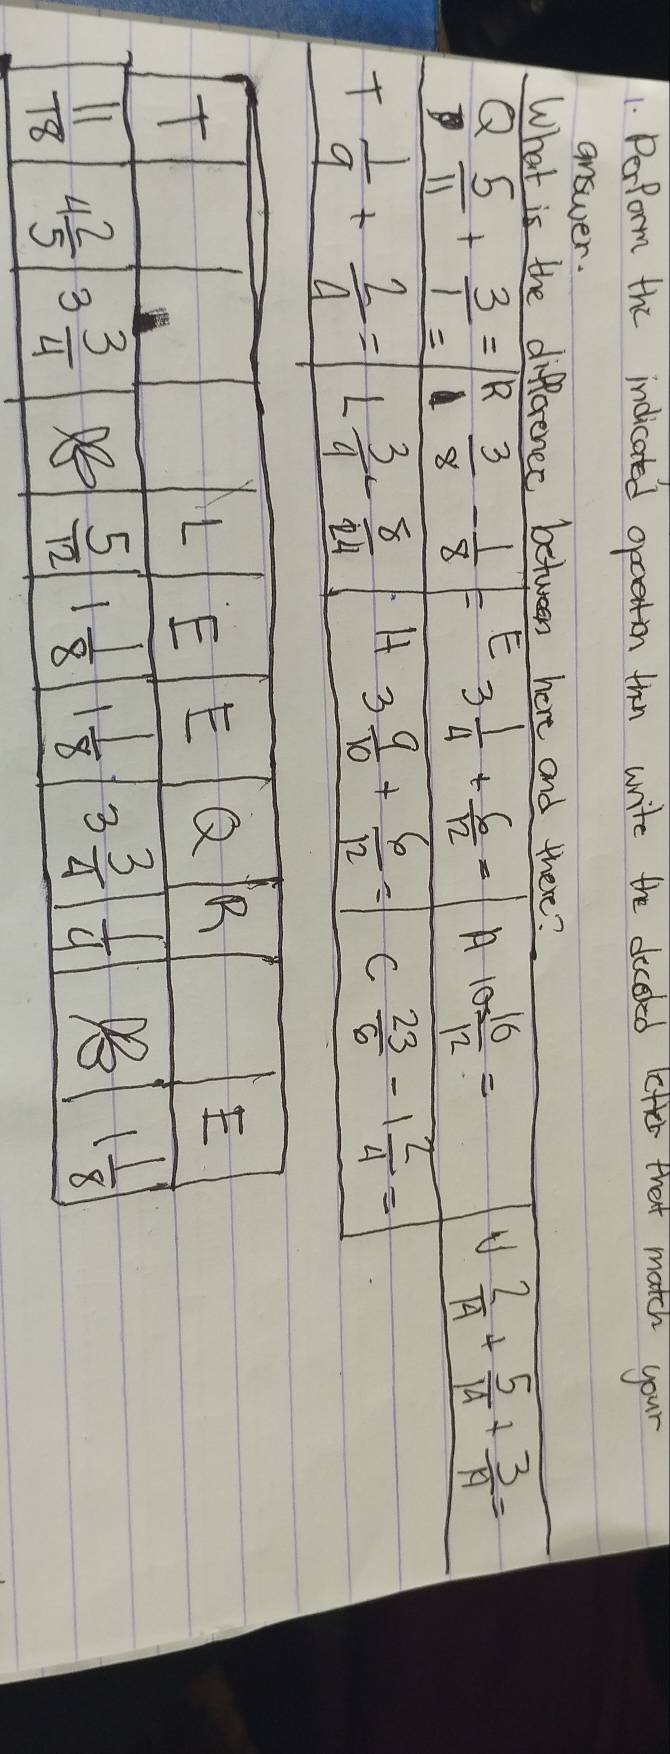 1. Perform the indicated operation then write the decoded letter that match your
answer.
What is the difference between here and there?
Q 5/11 + 3/1 = R 3/8 - 1/8 = E 3 1/4 + 6/12 = A 10 16/12 = N 2/14 + 5/14 + 3/14 =
T 1/9 + 2/4 = L 3/4 - 8/24 H 3 9/10 + 6/12 = C 23/6 - 1 2/4 =
T L E E Q R E
11/18 4 2/5 3 3/4 5/12 1 1/8 1 1/8 3 3/4 1/4 1 1/8